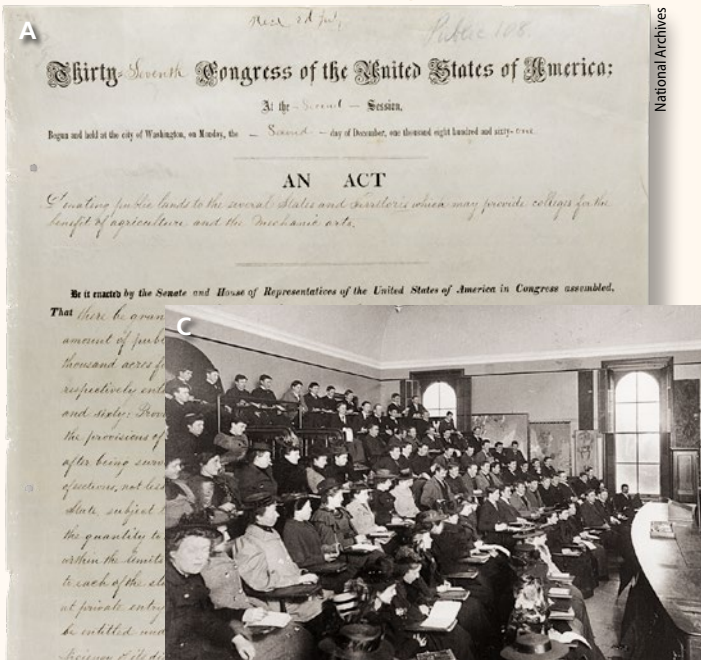 A
Public 108.
Thirty-Seventh Congress of the United States of America;
At the Second Session,
Begun and held at the city of Washington, on Monday, the Second day of December, one thousand eight hundred and sixty-one
AN ACT
Donating public lands to the several States and Territories which may provide colleges for the
benefit of agriculture and the mechanic arts.
Be it enacted by the Senate and House of Representatives of the United States of America in Congress assembled,
That there be gran
amount of publ
thousand acres f
respectively enti
and sixty: Prov
the provisions of
after being surv
of sections, not less
State, subject t
the quantity to
within the limits
to each of the sta
at private entry
be entitled und
C
National Archives